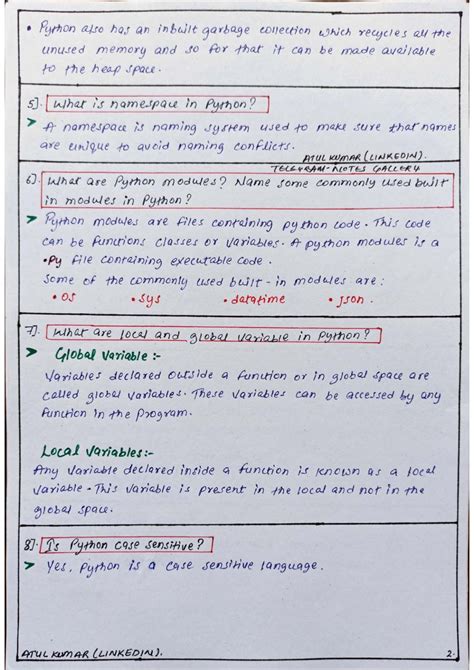 • Python also has an inbuilt garbage collection which recycles all the
unused memory and so for that it can be made available
to the heap space.
5]. What is namespace in Python?
➤ A namespace is naming system used to make sure that names
are unique to avoid naming conflicts.
ATUL KUMAR (LINKEDIN).
TELEGRAM - NOTES GALLERY
6]. What are Python modules? Name some commonly used built
in modules in Python?
➤ Python modules are files containing python code. This code
can be functions classes or variables. A python modules is a
.Py file containing executable code.
Some of the commonly used built-in modules are:
• os • sys • datatime • json.
7]. What are local and global variable in Python?
➤ Global variable :-
Variables declared outside a function or in global space are
called global variables. These variables can be accessed by any
function in the program.
Local variables:-
Any variable declared inside a function is known as a local
variable - This variable is present in the local and not in the
global space.
8]. Is Python case sensitive?
➤ Yes, python is a case sensitive language.
ATUL KUMAR (LINKEDIN). 2.